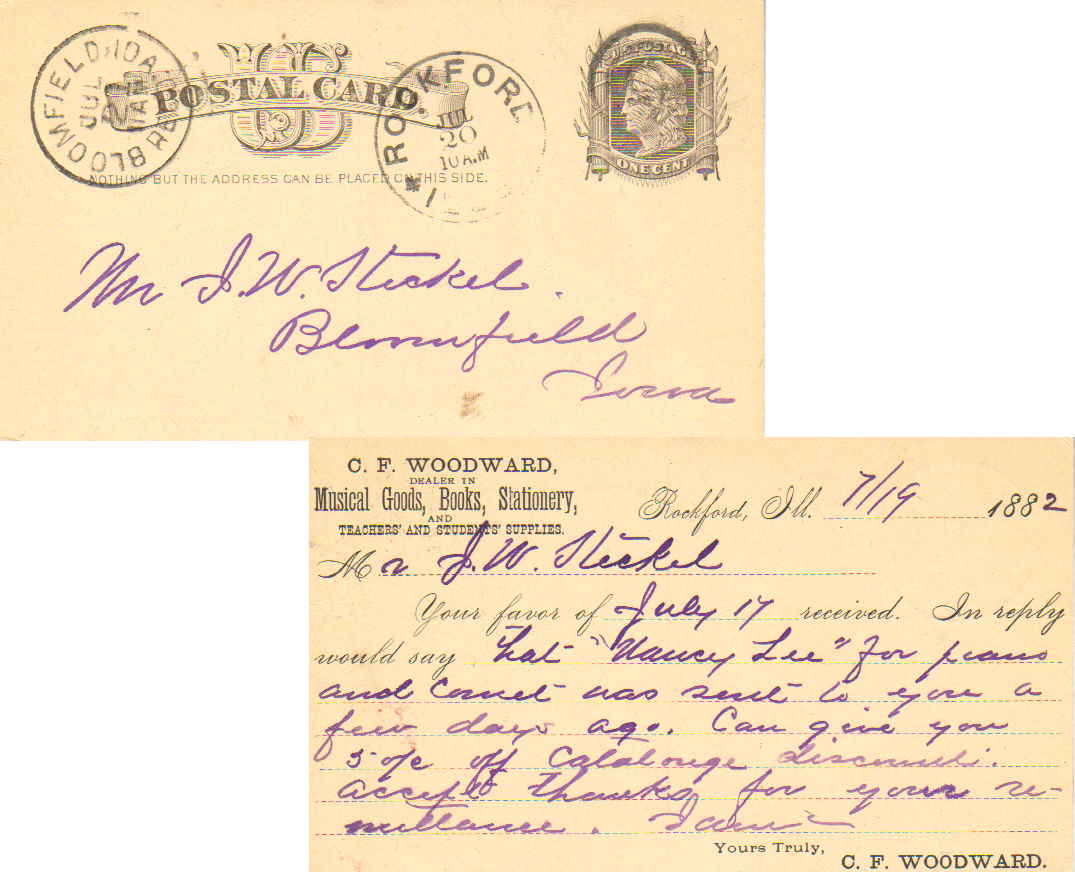 BLOOMFIELD, IOA
JUL
11 AM
POSTAL CARD.
US
NOTHING BUT THE ADDRESS CAN BE PLACED ON THIS SIDE.
ROCKFORD
JUL
20
10 AM
U.S. POSTAGE
ONE CENT
Mr J. W. Steckel.
Bloomfield
Iowa
C. F. WOODWARD,
DEALER IN
Musical Goods, Books, Stationery,
AND
TEACHERS' AND STUDENTS' SUPPLIES.
Rockford, Ill. 7/19 1882
Mr J. W. Steckel
Your favor of July 17 received. In reply
would say that "Nancy Lee" for piano
and Cornet was sent to you a
few days ago. Can give you
50/c off Catalouge discount.
accept thanks for your re-
mittance.
Yours Truly,
C. F. WOODWARD.